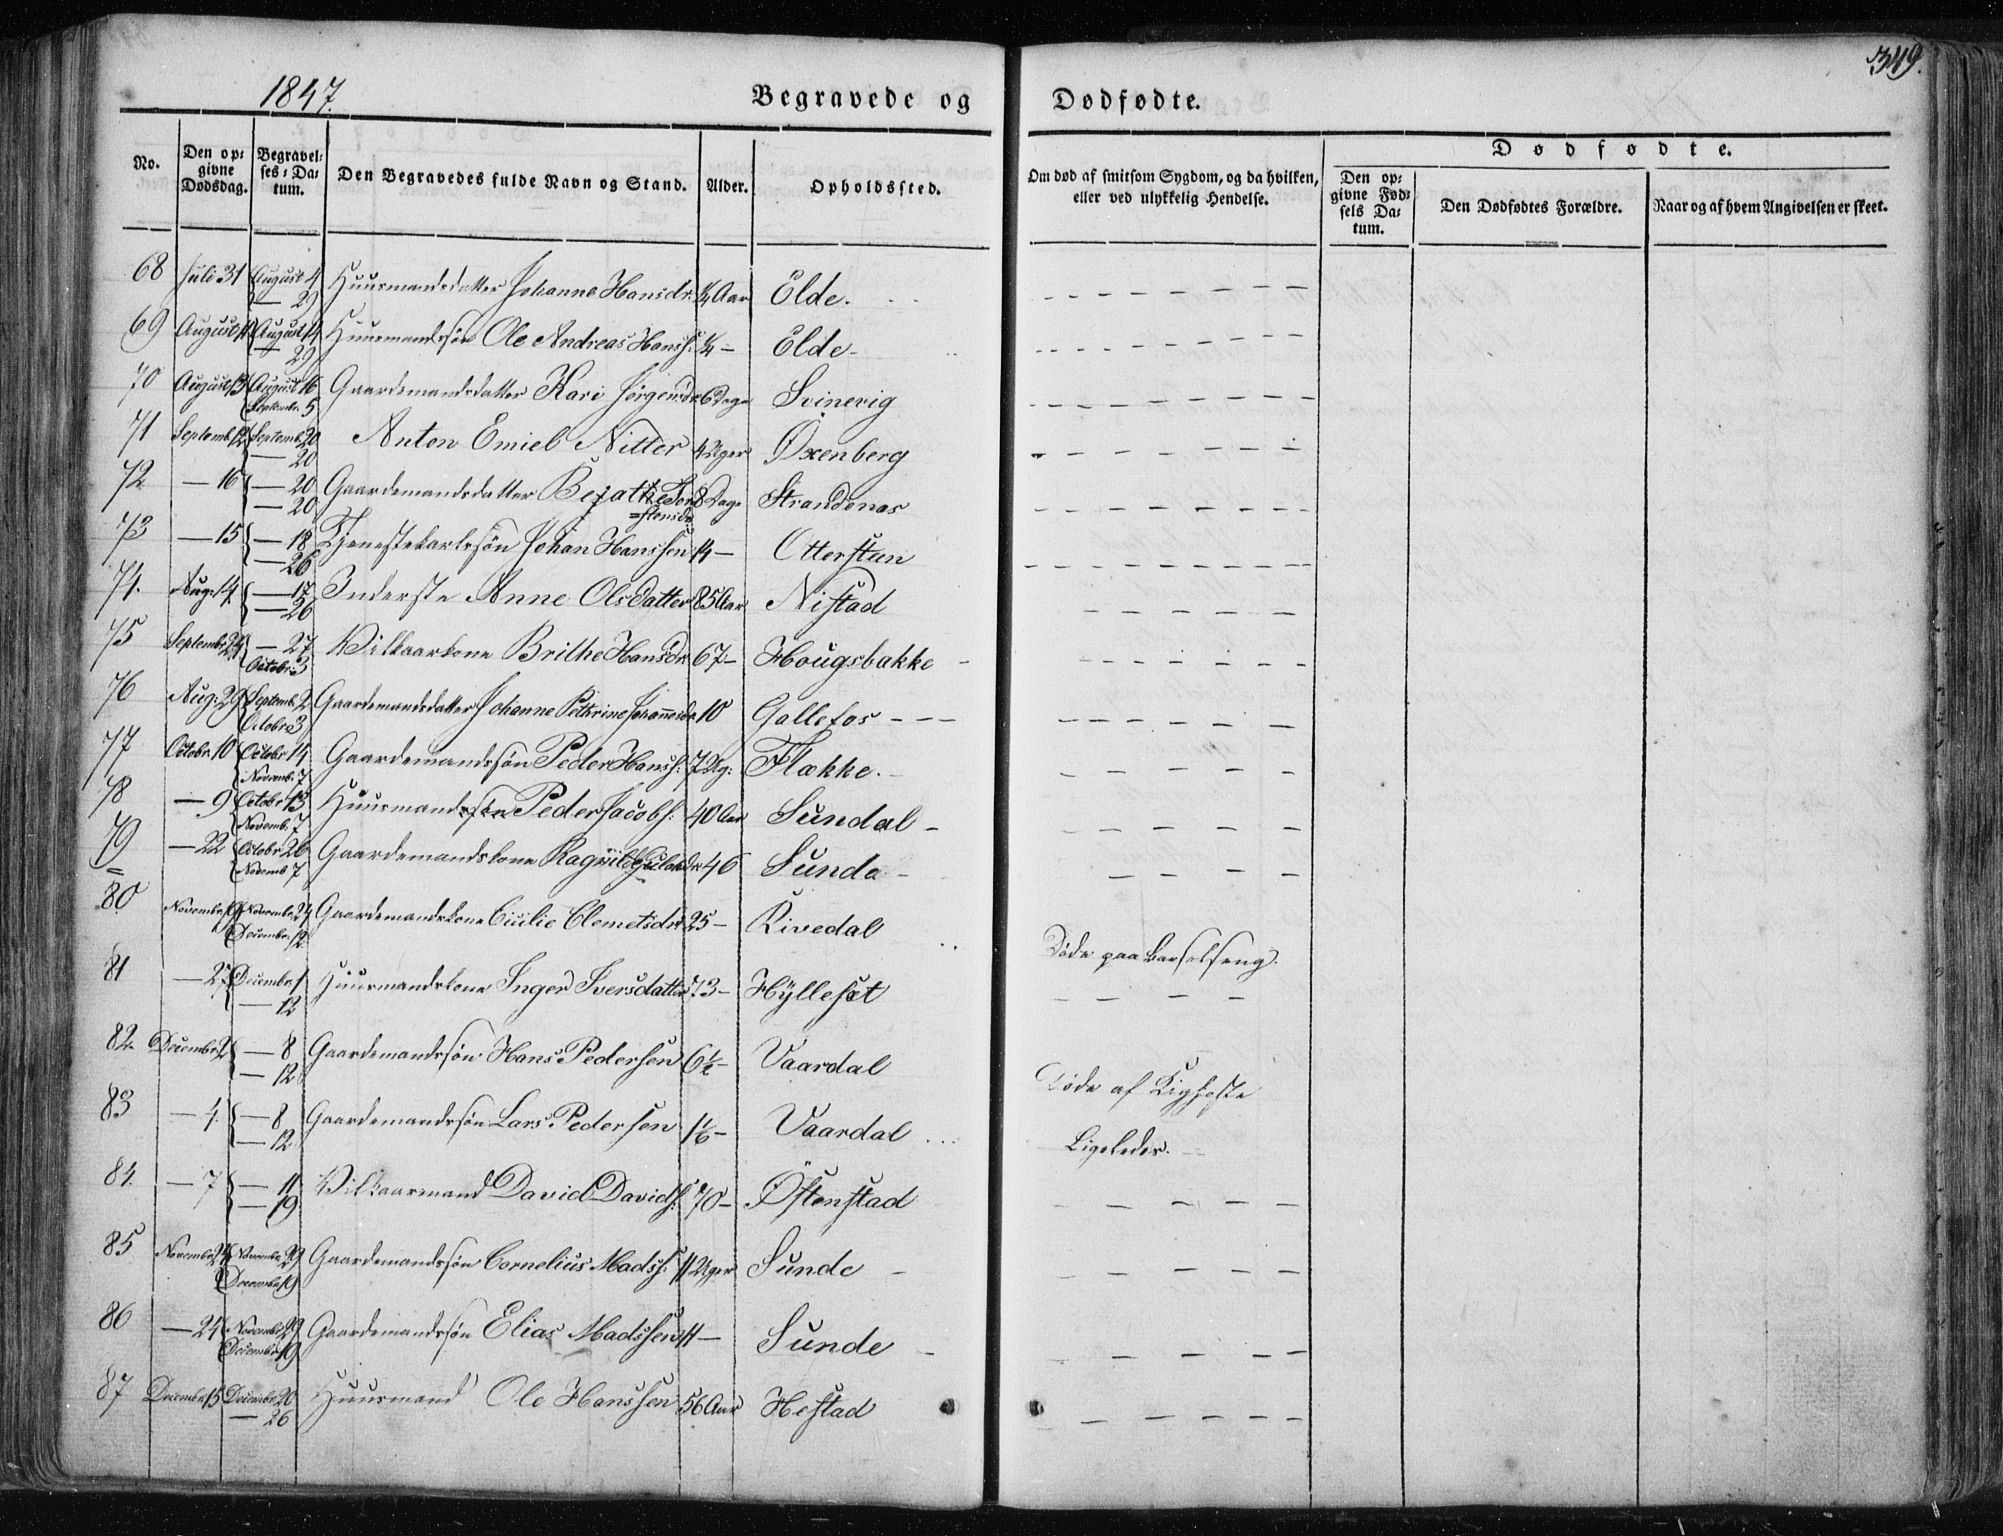 349.
1847.
Begravede og Dødfødte.
No. | Den op: givne Dødsdag. | Begravel: ses: Da: tum. | Den Begravedes fulde Navn og Stand. | Alder. | Opholdssted. | Om død af smitsom Sygdom, og da hvilken, eller ved ulykkelig Hendelse. | Dødfødte. | Den op: givne Fød: sels Da: tum. | Den Dødfødtes Forældre. | Naar og af hvem Angivelsen er skeet.
68 Juli 31 August 4 — 29 Huusmandsdatter Johanne Hansdr. ¼ Aar Elde.
69 August 11 August 14 — 29 Huusmandssøn Ole Andreas Hanss: ¼ — Elde
70 August 13 August 16 Septembr. 5 Gaardemandsdatter Kari Jørgensdr. 6 Dage Svinevig
71 Septemb. 12 Septemb. 20 — 20 Anton Emiel Nitter 4 Uger Øxenberg
72 — 16 — 20 — 20 Gaardemandsdatter Berathe Tor=stensdr. 8 Dage Strandenæs
73 — 15 — 18 — 26 Tjenestekarlssøn Johan Hanssen 14 — Otterstein
74. Aug: 14 — 17 — 26 Inderste Anne Olsdatter 85 Aar Nistad
75 Septembr. 24 — 27 Octobr. 3 Vilkaarkone Brithe Hansdr. 67 — Hougsbakke
76 Aug: 29 Septemb. 2 Octobr. 3 Gaardemandsdatter Johanne Pethrine Johannesdr. 10 Gallefos
77 Octobr. 10 Octobr. 14 Novemb. 7 Gaardemandssøn Peder Hanss: 7 Ug: Flække.
78 — 9 Octobr. 13 Novemb. 7 Huusmand Peder Jacobs: 40 Aar Sundal
79 — 22 Octobr. 26 Novemb. 7 Gaardemandskone Ragnild 46 Sunde
80 Novembr. 19 Novembr. 24 Decembr. 12 Gaardemandskone Cicilie Clemetsdr. 25 — Rivedal Døde paa Barselseng.
81 — 27 Decembr. 1 — 12 Huusmandskone Inger Iversdatter 43 — Hÿllesæt
82 Decembr. 2 — 8 — 12 Gaardemandssøn Hans Pedersen 6½ — Vaardal Døde af Kighoste
83 — 4. — 8 — 12 Gaardemandssøn Lars Pedersen 1⅙ — Vaardal Ligeledes.
84. — 7 — 11 — 19 Vilkaarmand David Davids: 70 — Østenstad
85 Novembr. 24 Novembr. 29 Decembr. 19 Gaardemandssøn Cornelius Madss: 11 Uger Sunde
86 — 24 Novembr. 29 Decembr. 19 Gaardemandssøn Elias Madssen 11 — Sunde
87 Decembr. 15 Decembr. 20 — 26 Huusmand Ole Hanssen 56 Aar Hestad